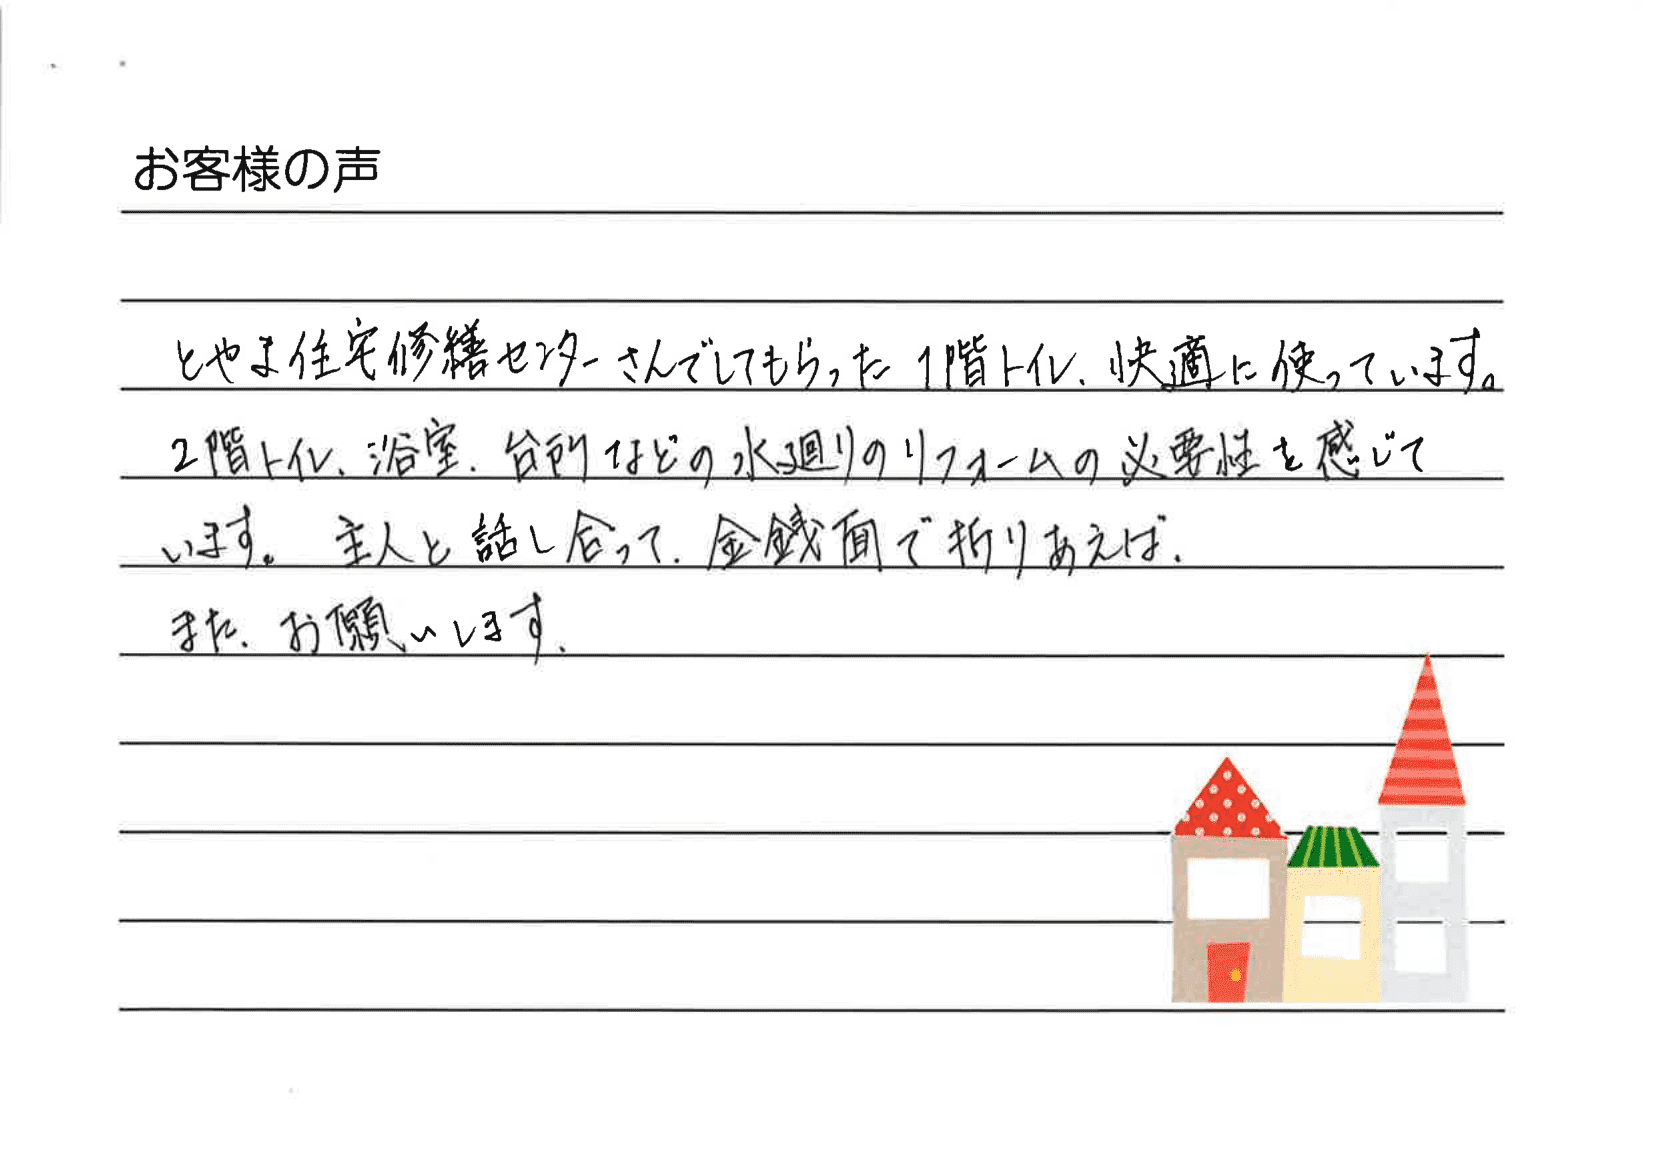 お客様の声
とやま住宅修繕センターさんでしてもらった1階トイレ、快適に使っています。
2階トイレ、浴室、台所などの水廻りのリフォームの必要性を感じて
います。 主人と話し合って、金銭面で折りあえば、
また、お願いします。